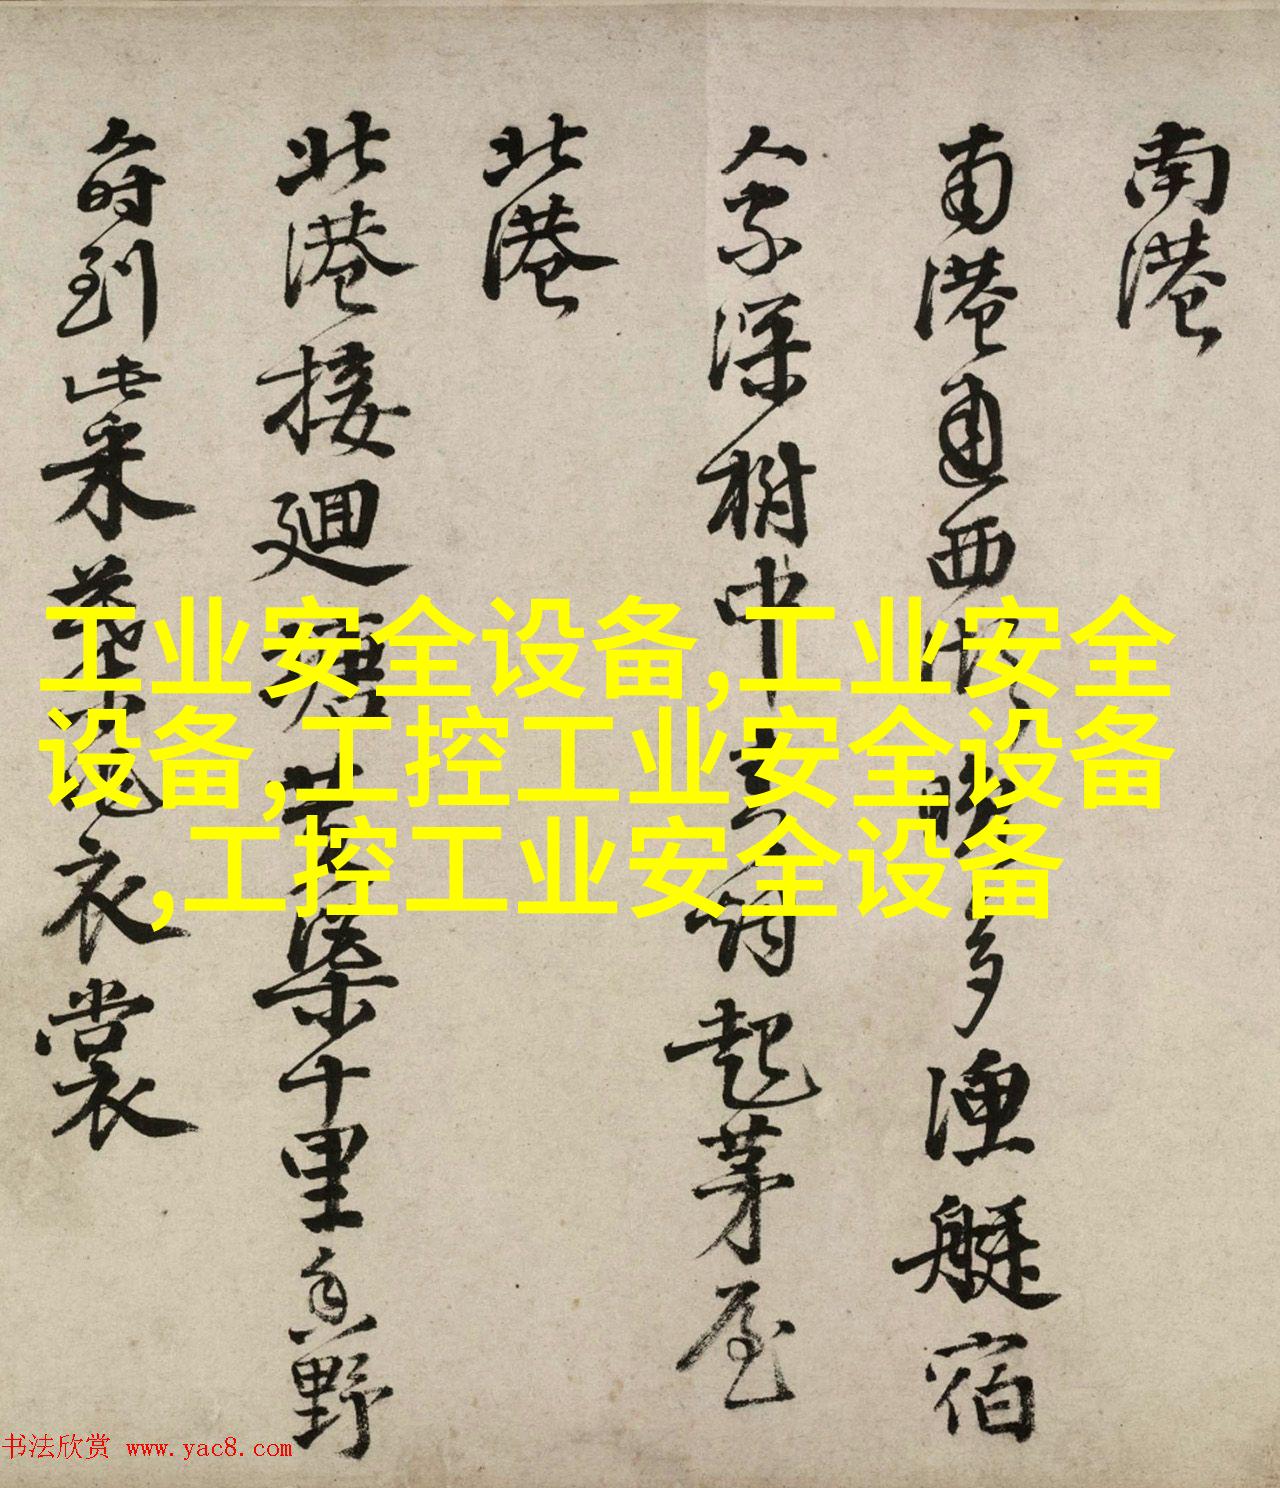 南港
南港通西湖晚多漁艇宿
人家深樹中起茅屋
北港
北港接迴塘渠十里香野
人時到此采衣裳
工业安全设备,工业安全
设备,工控工业安全设备
,工控工业安全设备
书法欣赏 www.yac8.com